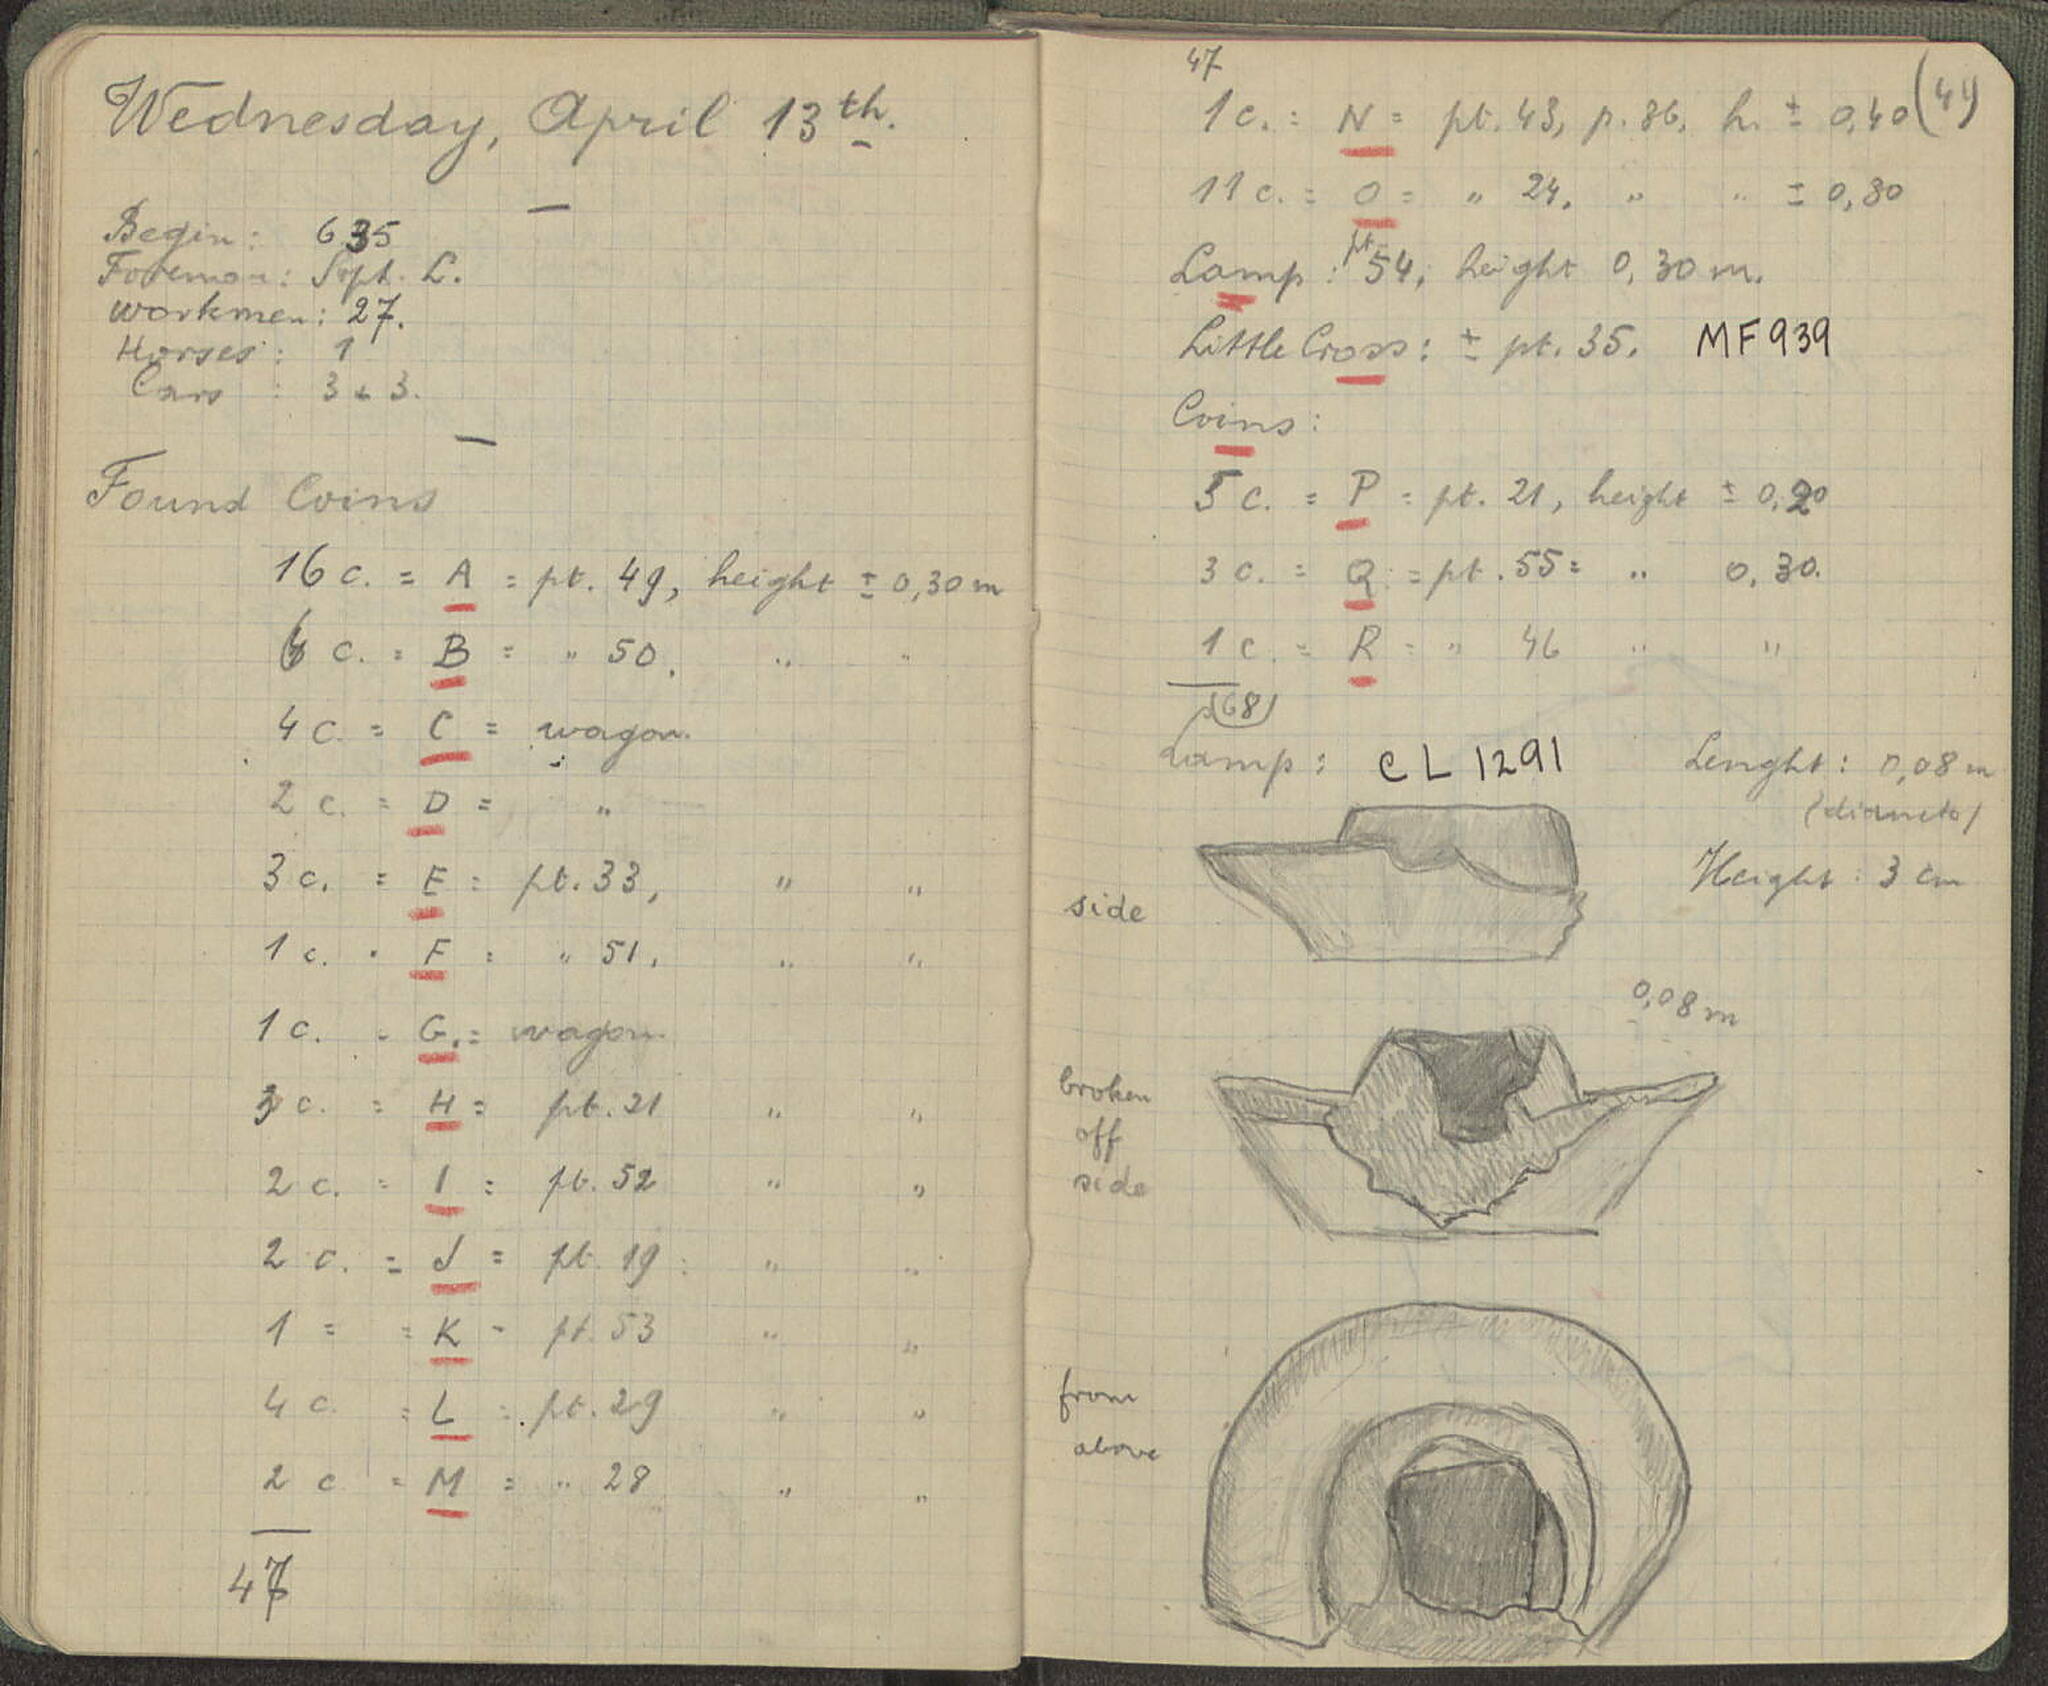 Wednesday, April 13th.
Begin: 635
Foreman: Sopt. L.
Workmen: 27.
Horses: 1
Cars : 3 + 3.
Found Coins
16 c. = A = pt. 49, height ± 0,30 m
c. = B = " 50. " "
4 c. = C = wagon.
2 c. = D = "
3 c. = E = pt. 33, " "
1 c. = F = " 51. " "
1 c. = G. = wagon.
3 c. = H = pt. 21 " "
2 c. = I = pt. 52 " "
2 c. = J = pt. 19 " "
1 = = K = pt. 53 " "
4 c. = L = pt. 29 " "
2 c = M = " 28 " "
47
47
(44)
1 c. = N = pt. 43, p. 86, h. ± 0,40
11 c. = O = " 24, " " ± 0,80
Lamp: pt 54, height 0,30 m.
Little Cross: ± pt. 35. MF939
Coins:
5 c. = P = pt. 21, height ± 0,20
3 c. = Q = pt. 55 = " 0,30.
1 c. = R = " 46 " "
(68)
Lamp: CL 1291
Lenght: 0,08 m
Height: 3 cm
side
0,08 m
broken
off
side
from
above